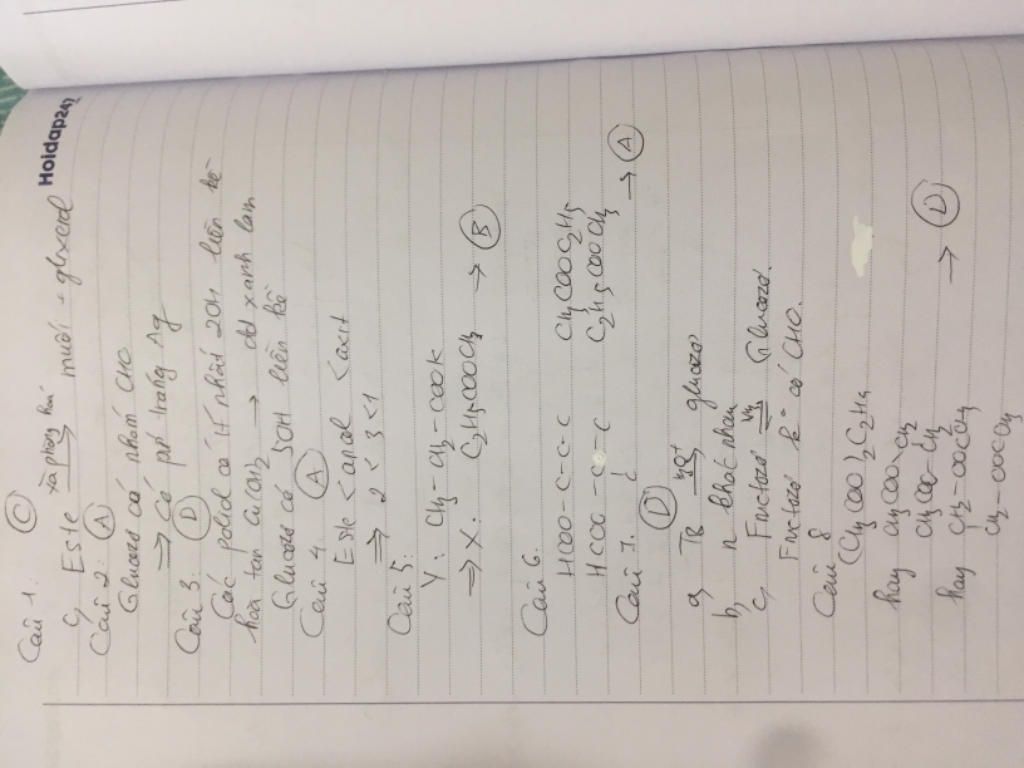 Hoidap247
Câu 1: Ⓒ
c, Este xà phòng hoá → muối + glyxerol
Câu 2: Ⓐ
Glucozo có nhóm CHO
⇒ Có pứ tráng Ag
Câu 3: Ⓓ
Các poliol có ít nhất 2OH liền kề
hòa tan Cu(OH)2 → dd xanh lam
Glucozo có 5OH liền kề
Câu 4: Ⓐ
Este < ancol < axit
⇒ 2 < 3 < 1
Câu 5:
Y: CH3-CH2-COOK
⇒ X: C2H5COOCH3 → Ⓑ
Câu 6.
HCOO-C-C-C CH3COOC2H5
HCOO-C-C C2H5COOCH3 → Ⓐ
C
Câu 7. Ⓓ
a, TB H3O+ → glucozo
b, n khác nhau
c, Fructozo ⇌ Glucozo.
Fructozo k° có CHO.
Câu 8
(CH3COO)2C2H4
hay CH3COO-CH2
CH3COO-CH2
hay CH2-OOCCH3 → Ⓓ
CH2-OOCCH3